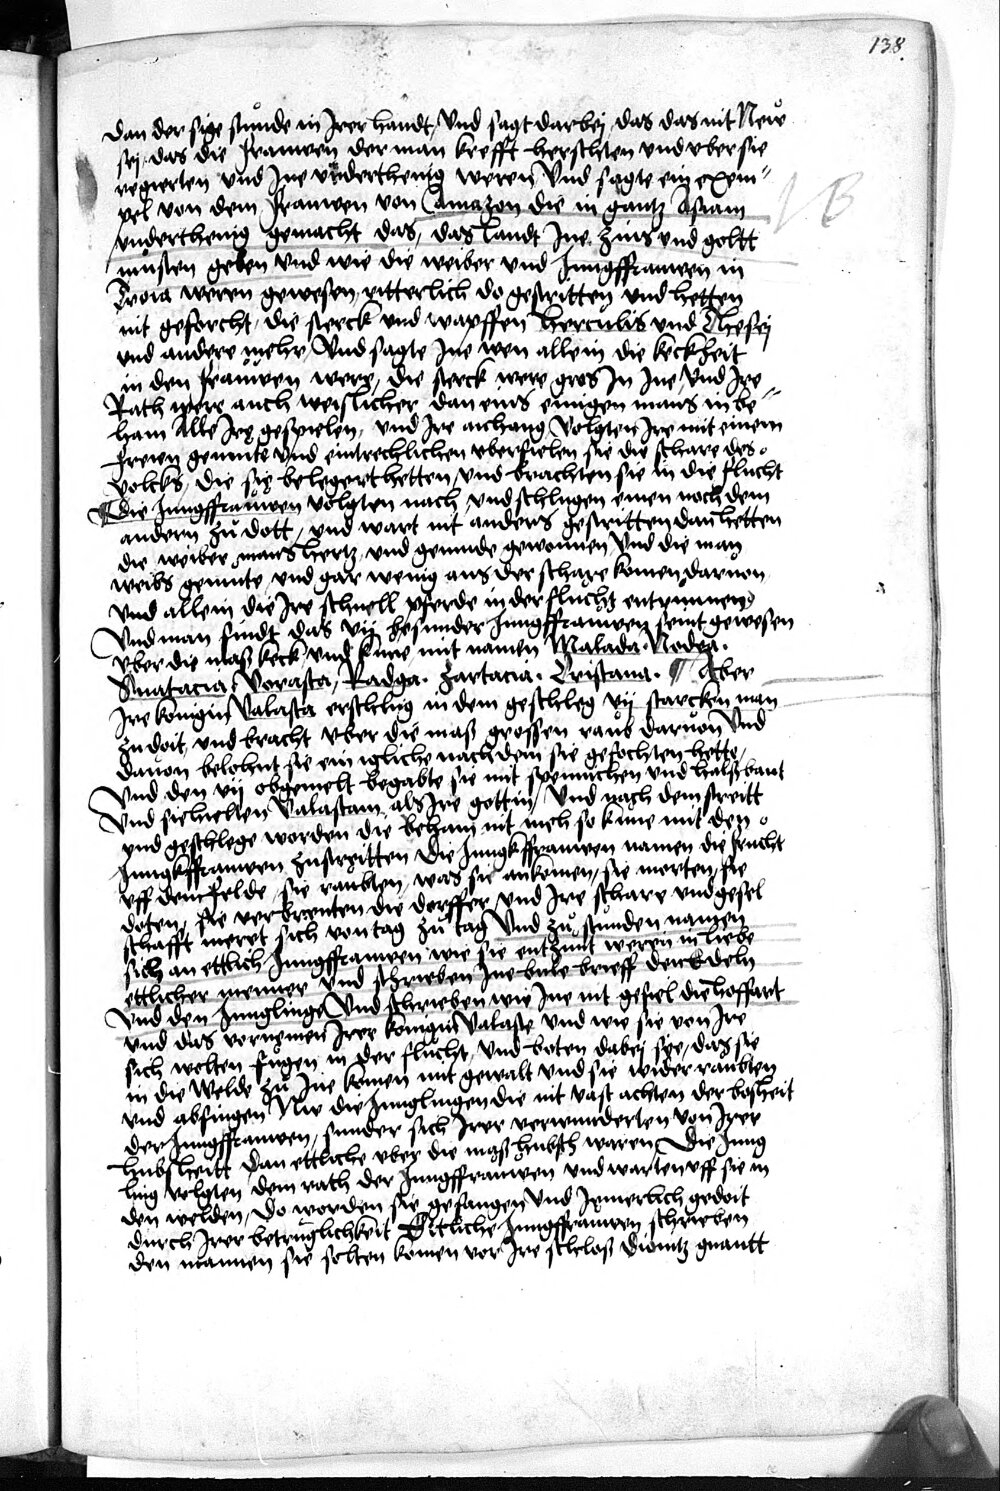 138.
dan der sige stunde in Irer handt, Und sagt darbej, das das nit Neuͦe
sej, das die frauwen der man krefft herschten und vber sie
regierten und Ine vnderthenig weren Und sagte ein exem"
pel von dem frauwen von Amazon die in gantz Asiam
vnderthenig gemacht das, das landt Ine zins und goltt
musten geben und wie die weiber und Jungffrauwen in
Troia weren gewesen, ritterlich do gestritten und hetten
nit geforcht, die sterck und wapffen Herculis und Thesej
und andere mehr, Und sagte Ine wen allein die keckheit
in den frauwen were, die sterck were gros In Ine, Und Ire
Rath were auch weislicher dan eins einigen mans in be"
ham Alle Ire gespielen, und Ire anhang Volgten Ire mit einem
freien gemute und eintrechlichen vberfielen sie die schare des
volcks, die sie belegert hetten, und brachten sie in die flucht
¶ Die Jungffrauwen volgten nach, und schlugen einen noch dem
andern zuͦ dott, und wart nit anders gestritten dan hetten
die weiber mans hertz, und gemude gewonnen Und die man
weibs gemute, und gar wenig aus der schare komen daruon
Und allein die Ire schnell pferde in der flucht entrunnen,
Und man findt das vij besunder Jungffrauwen seint gewesen
vber die maß keck und kune, mit namen Malada. Nodea.
Suatacia, Vorasta, Radga. Zartacia. Tristana. ¶ Aber
Ire konigin Valasta erschlug in dem geschleg vij starcken man
zu doit, und bracht vber die maß grossen raub daruon Und
dauon belohnt sie ein igliche nach dem sie gefochten hette,
Und den vij obgemelt begabte sie mit spennichen und halßbant
Und sie hielten Valastam, als Ire gottin, Und nach dem streitt
und geschlege worden die beham nit meh so kune mit den
Jungkffrauwen zustreitten Die Jungkffrauwen namen die frucht
vff dem felde, sie raubten, was sie ankomen, sie morten, sie
doten, sie verbrenten die dorffer und Ire schare und gesel
schafft meret sich von tag zuͦ tag Und zuͦ stunden namen
sich an ettlich Jungffrauwen wie sie entzunt weren in liebe
ettlicher menner und schrieben Ine bule brieff den Edeln
Und den Junglinge Und schrieben wie Ine nit gefiel die hoffart
und das vornemen Irer konigin Valaste und wie sie von Ire
sich wolten fugen in der flucht, und boten dabej sye, das sie
in die Welde zuͦ Ine komen mit gewalt und sie wider raubten
und abfingen Nu die Junglingen die nit vast achten der bosheit
der Jungffrauwen, sunder sich Irer verwunderten von Irer
hubscheitt dan ettliche vber die maß hubsch waren, Die Jung
ling volgten dem rath der Jungffrauwen und warten vff sie in
den welden, Do worden sie gefangen Und Jemerlich gedoit
durch Irer betruglichkeit Ettliche Jungffrauwen schrieben
den mannen sie solten komen vor Ire schloß Diuitz gnantt